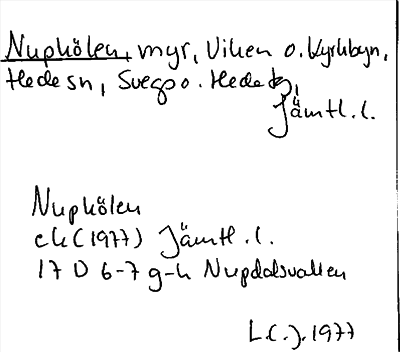 Nupkölen, myr, Viken o. Kyrkbyn,
Hede sn, Svegs o. Hede tg,
Jämtl. l.
Nupkölen
ek (1977) Jämtl. l.
17 D 6-7 g-h Nupdalsvallen
L.C.J. 1977